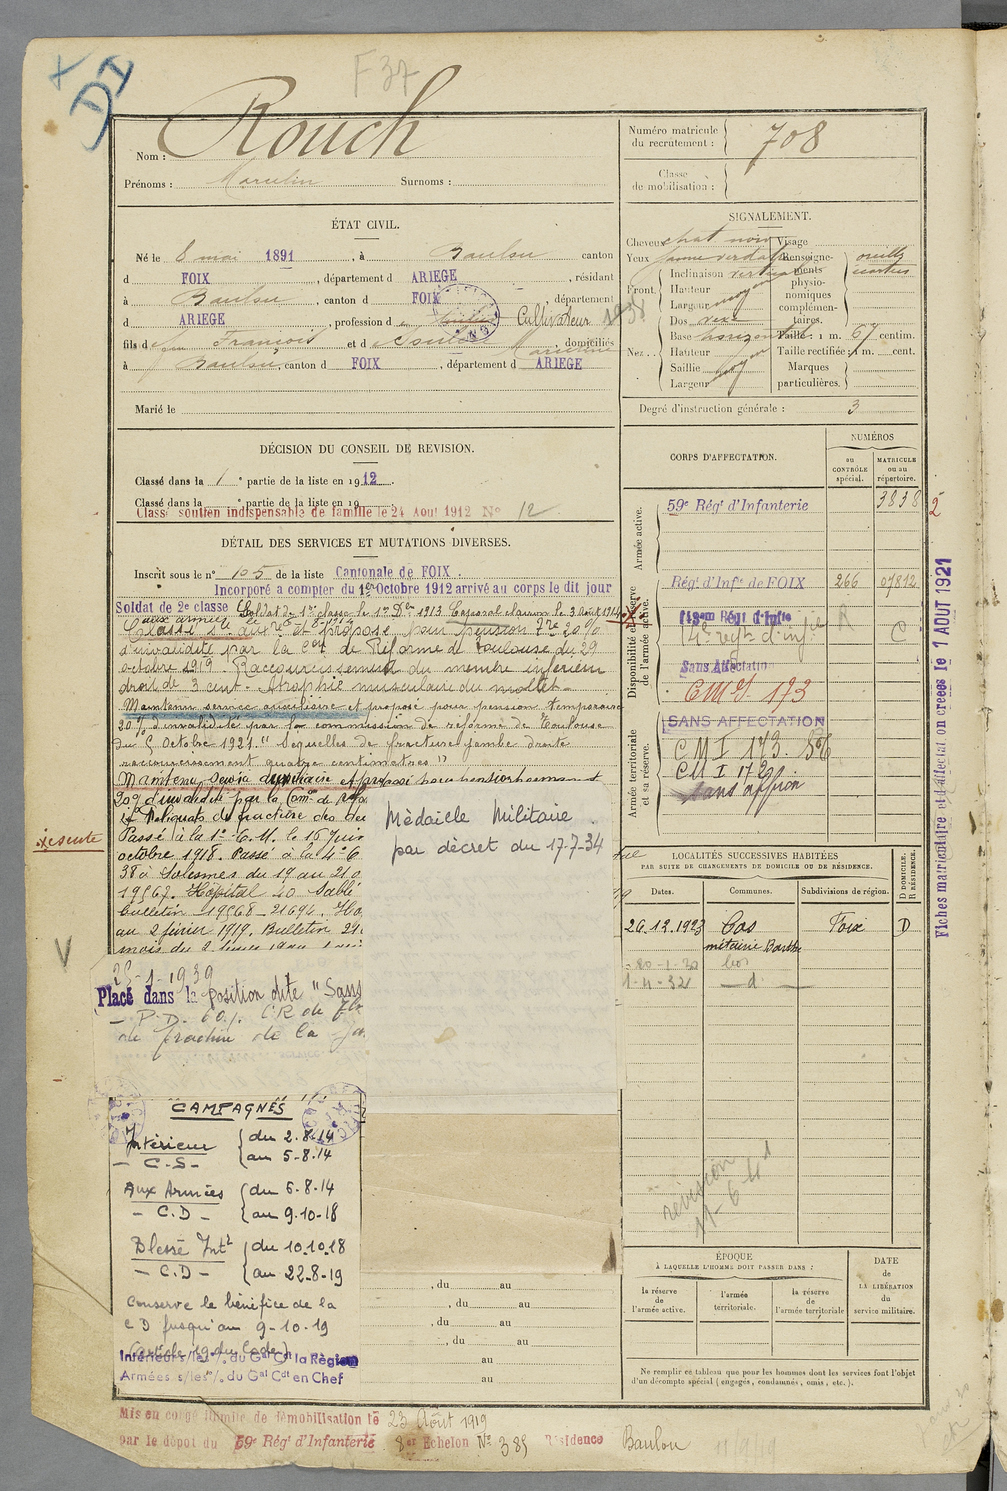 F 37
DI
Nom : Rouch
Prénoms : Marcelin Surnoms :
Numéro matricule du recrutement : 708
Classe de mobilisation :
ÉTAT CIVIL.
Né le 8 mai 1891, à Baulou canton
d FOIX, département d ARIEGE, résidant
à Baulou, canton d FOIX, département
d ARIEGE, profession d Cultivateur
fils d feu François et d domiciliés
à Baulou, canton d FOIX, département d ARIEGE
Marié le
SIGNALEMENT.
Cheveux chat. noir Visage
Yeux jaune verdâtre Renseigne-
Inclinaison vertical ments oreilles
Front. Hauteur physio- écartées
Largeur moyen nomiques
complémen-
Dos rexe taires.
Base horizontal Taille : 1 m. 67 centim.
Nez. . Hauteur moyen Taille rectifiée : 1 m. cent.
Saillie Marques
Largeur moyen particulières.
Degré d'instruction générale : 3
DÉCISION DU CONSEIL DE REVISION.
Classé dans la 1e partie de la liste en 1912.
Classé dans la e partie de la liste en 19
Classé soutien indispensable de famille le 24 Aout 1912 No 12
DÉTAIL DES SERVICES ET MUTATIONS DIVERSES.
Inscrit sous le no 105 de la liste Cantonale de FOIX.
Incorporé à compter du 1er Octobre 1912 arrivé au corps le dit jour
Soldat de 2e classe Soldat de 1re classe le 1er Dbre 1913. Caporal clairon le 3 Août 1914
aux armées le 6-8-1914
Classé Sce auxre et proposé pour pension Tre 20%
d'invalidité par la Con de Réforme de Toulouse du 29
octobre 1919. Raccourcissement du membre inférieur
droit de 3 cent. Atrophie musculaire du mollet
Maintenu service auxiliaire et proposé pour pension temporaire
20% d'invalidité par la commission de réforme de Toulouse
du 5 Octobre 1921. "Séquelles de fracture jambe droite
raccourcissement quatre centimètres"
Maintenu Service Auxiliaire et proposé pour pension permanent
20% d'invalidité par la Comon de Réfo
Reliquats de fracture des deu
Passé à la 1e C.M. le 15 juin
octobre 1918. Passé à la 4e C
38 à Solesmes du 19 au 21 o
19567. Hôpital 40 Sablé
bulletin 19568 - 21694. Ho
au 2 février 1919. Bulletin 29
exécuté
V
Médaille Militaire.
par décret du 17-7-34
25-1-1939
Placé dans la position dite "Sans
P.D. 60%. CR de
de fracture de la
CAMPAGNES
Intérieur { du 2.8.14
- C.S - { au 5-8.14
Aux Armées { du 6-8-14
- C.D - { au 9-10-18
Blessé Intr { du 10.10.18
- C.D - { au 22-8-19
Conserve le bénéfice de la
CD jusqu'au 9-10-19
(article 19 du Code)
Intérieur s/les % du Gal Cdt la Région
Armées s/les % du Gal Cdt en Chef
, du au
, du au
, du au
, du au
au
au
Mis en congé illimité de démobilisation le 23 Août 1919
par le dépôt du 59e Régt d'Infanterie 8e Echelon No 385 Résidence Baulou
CORPS D'AFFECTATION.
NUMÉROS
au CONTRÔLE spécial.
MATRICULE ou au répertoire.
Armée active.
59e Régt d'Infanterie 3838
Disponibilité et réserve de l'armée active.
Régt d'Infie de FOIX 266 07812
14e regt d'infie C
Sans Affectation
CMI 173
Armée territoriale et sa réserve.
SANS AFFECTATION
CMI 173.
CMI 172
sans affon
Fiches matriculaire et d'affectation créées le 1 AOUT 1921
LOCALITÉS SUCCESSIVES HABITÉES
PAR SUITE DE CHANGEMENTS DE DOMICILE OU DE RÉSIDENCE.
Dates. Communes. Subdivisions de région. D DOMICILE. R RÉSIDENCE.
26.12.1923 Cos Foix D
métairie Barthe
20-1-30
1-4-32 -d-
révision
11-6-41
ÉPOQUE
À LAQUELLE L'HOMME DOIT PASSER DANS :
la réserve de l'armée active.
l'armée territoriale.
la réserve de l'armée territoriale
DATE de LA LIBÉRATION du service militaire.
Ne remplir ce tableau que pour les hommes dont les services font l'objet
d'un décompte spécial (engagés, condamnés, omis, etc.).